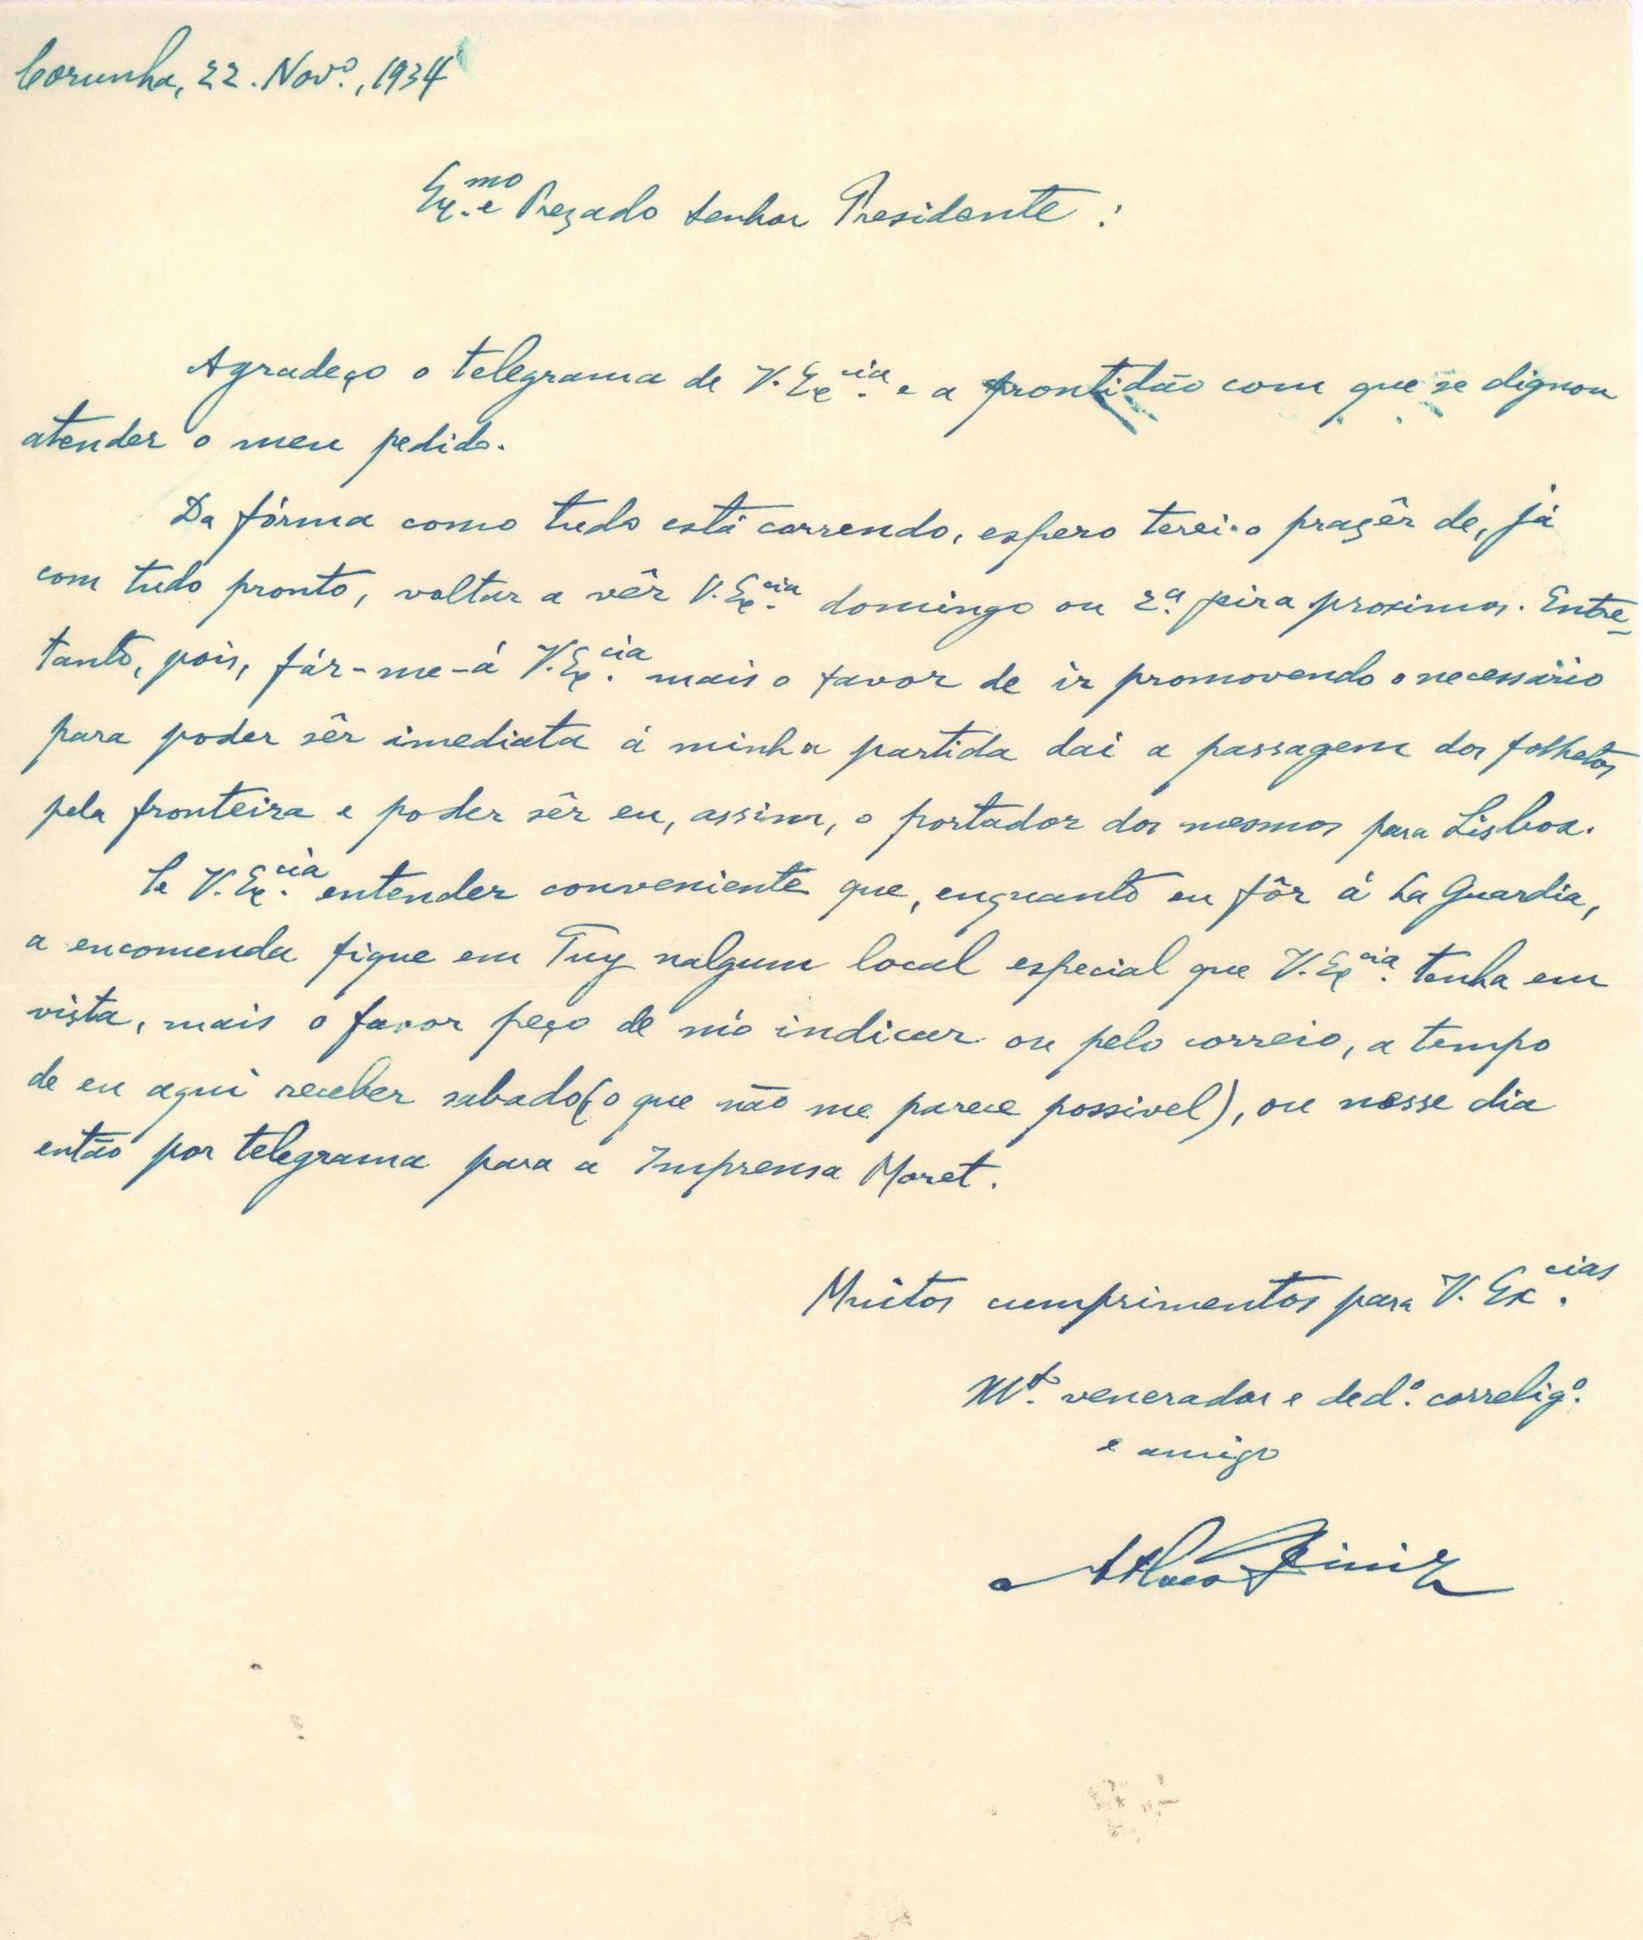 Corunha, 22. Novº., 1934
Ex.mo e Prezado Senhor Presidente:
Agradeço o telegrama de V. Ex.cia e a prontidão com que se dignou
atender o meu pedido.
Da fórma como tudo está correndo, espero terei o prazêr de, já
com tudo pronto, voltar a vêr V. Ex.cia domingo ou 2.ª feira proximos. Entre-
tanto, pois, fár-me-á V. Ex.cia mais o favor de ir promovendo o necessário
para poder sêr imediata á minha partida daí a passagem dos folhetos
pela fronteira e poder sêr eu, assim, o portador dos mesmos para Lisboa.
Se V. Ex.cia entender conveniente que, enquanto eu fôr á La Guardia,
a encomenda fique em Tuy nalgum local especial que V. Ex.cia tenha em
vista, mais o favor peço de m'o indicar ou pelo correio, a tempo
de eu aqui receber sabado (o que não me parece possivel), ou nesse dia
então por telegrama para a Imprensa Moret.
Muitos cumprimentos para V. Ex.cias
Mt.º venerador e ded.º correlig.º
e amigo
Diniz